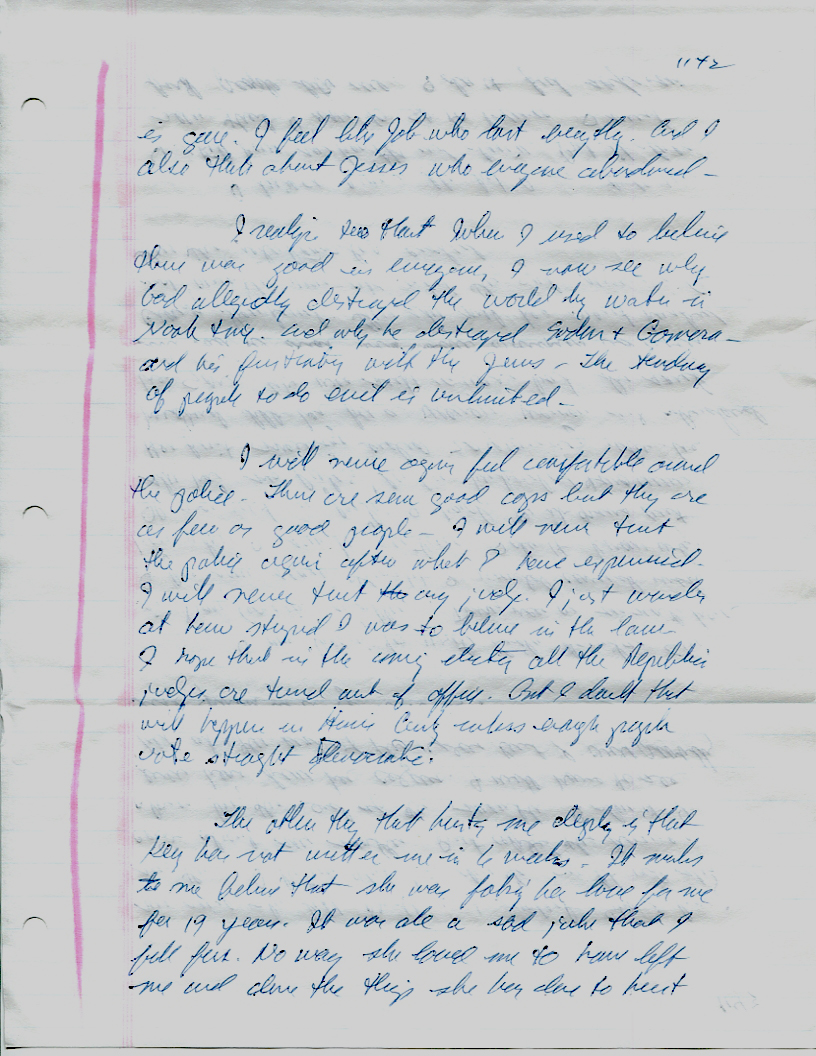 1142
is gone. I feel like Job who lost everything. And I
also think about Jesus who everyone abandoned -
I realize too that when I used to believe
there was good in everyone, I now see why
God allegedly destroyed the world by water in
Noah time. and why he destroyed Sodom + Gomorra -
and his frustration with the Jews - The tendency
of people to do evil is unlimited -
I will never again feel comfortable around
the police - There are some good cops but they are
as few as good people - I will never trust
the police again after what I have experienced.
I will never trust any judge. I just wonder
at how stupid I was to believe in the law -
I hope that in the coming election all the Republican
judges are turned out of office. But I doubt that
will happen in Harris County unless enough people
vote straight Democratic.
The other thing that hurts me deeply is that
Key has not written me in 6 weeks. It makes
to me believe that she was faking her love for me
for 19 years. It was all a sad joke that I
fell for. No way she loved me to have left
me and done the things she has done to hurt